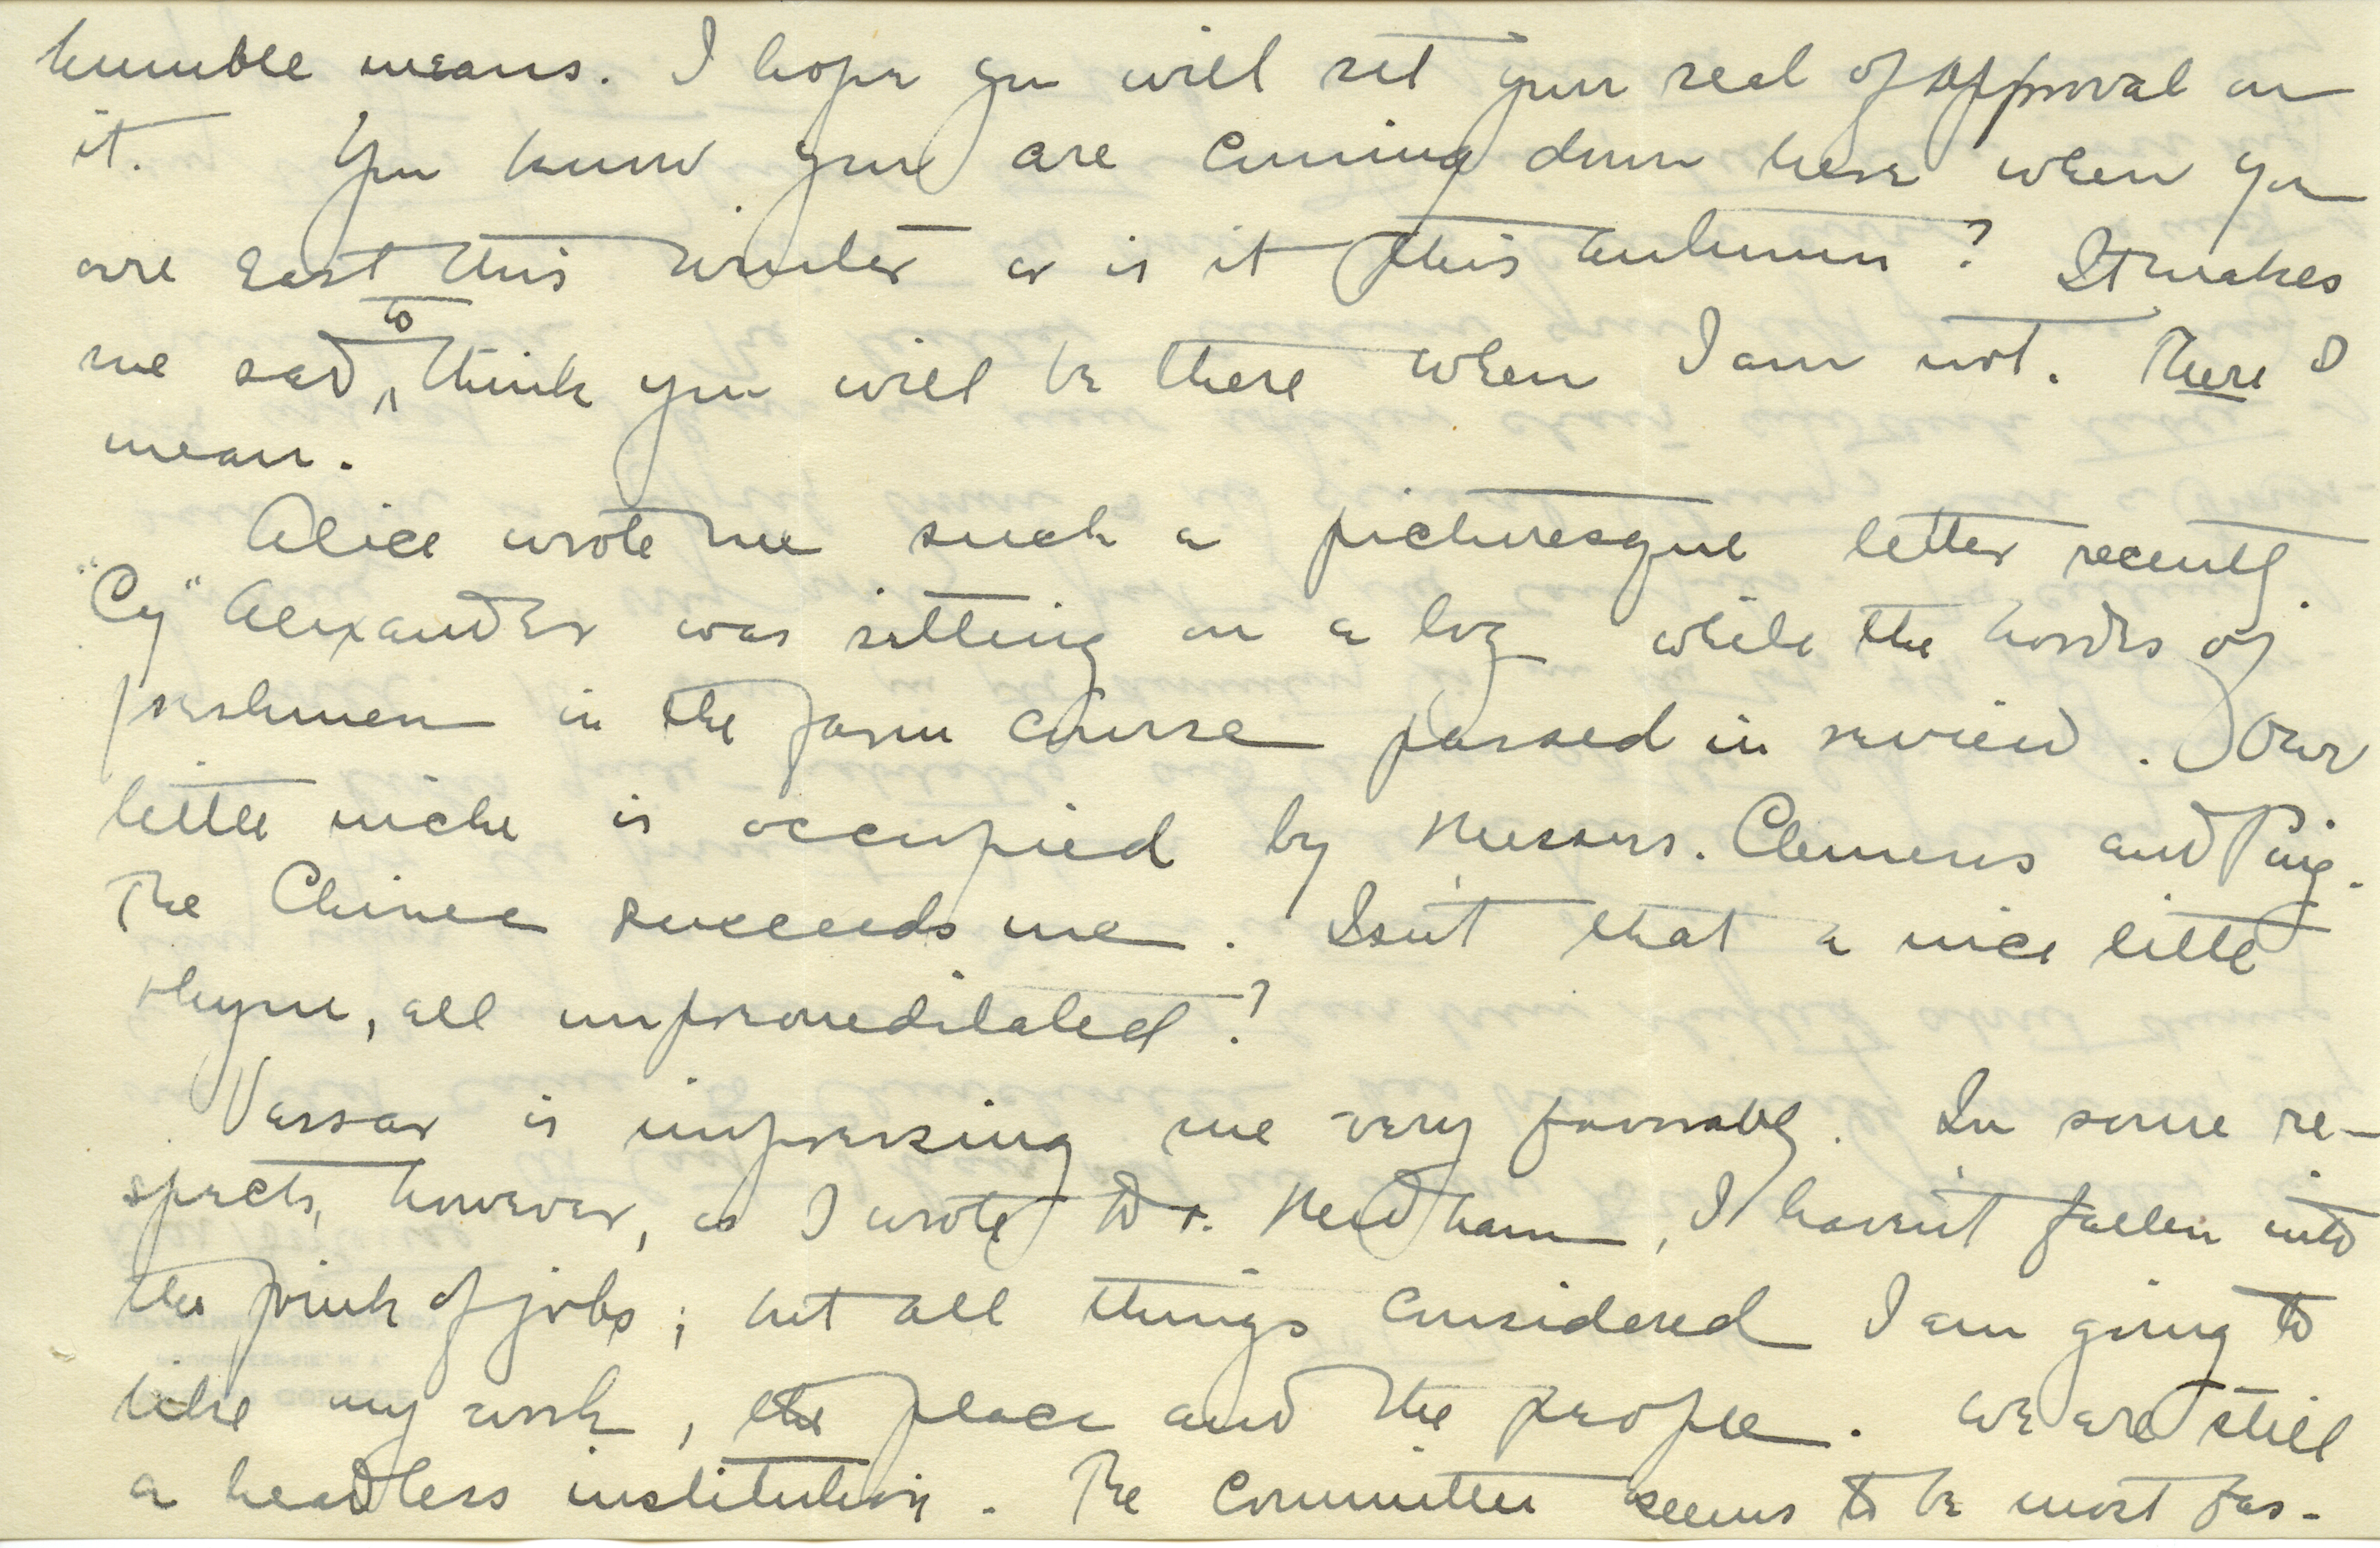 humble means. I hope you will set your seal of approval on
it. You know you are coming down here when you
are East this winter or is it this autumn? It makes
me sad to think you will be there when I am not. There I
mean.
Alice wrote me such a picturesque letter recently.
"Cy" Alexander was sitting on a log while the hordes of
freshmen in the farm course passed in review. Our
little niche is occupied by Messrs. Clemens and Ping.
The Chinee succeeds me. Isn't that a nice little
rhyme, all unpremeditated?
Vassar is impressing me very favorably. In some re-
spects, however, as I wrote Dr. Needham, I haven't fallen into
the pink of jobs; but all things considered I am going to
like my work, the place and the people. We are still
a headless institution. The Committee seems to be most fas-